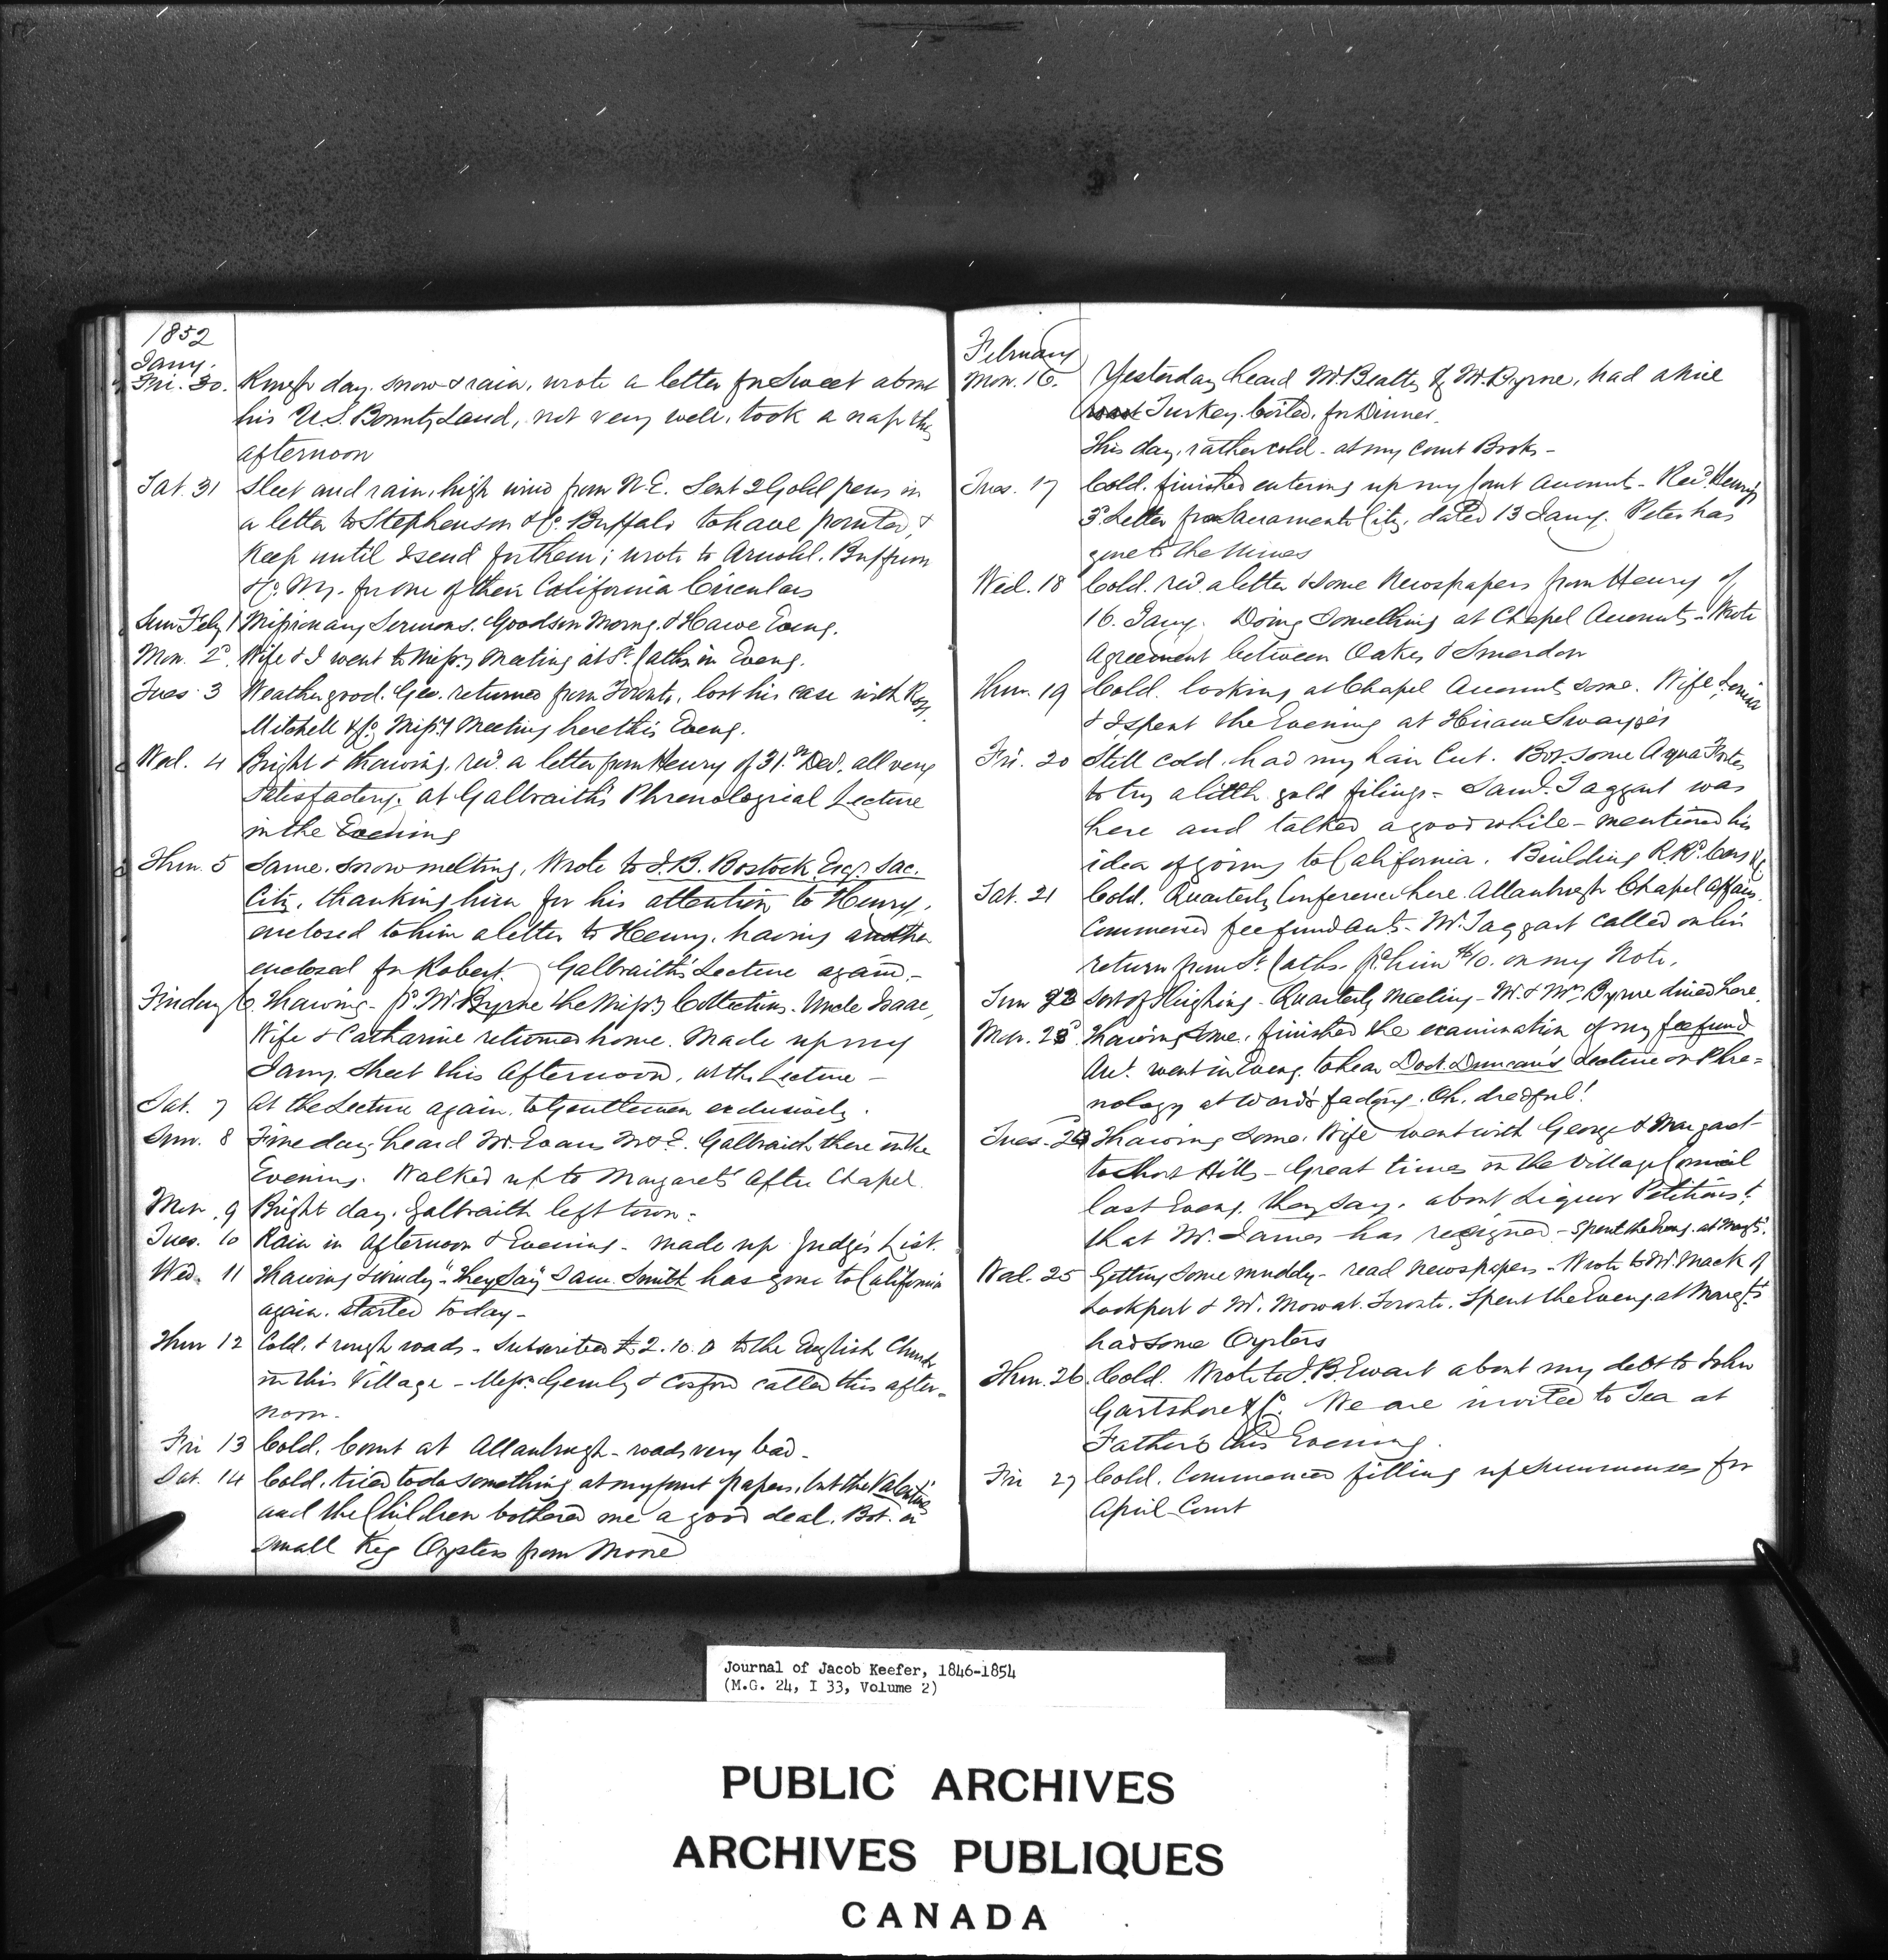 1852
Jany.
Fri. 30. Rough day. snow & rain, wrote a letter for Sweet about
his U.S. Bounty Land, not very well, took a nap this
afternoon
Sat. 31 Sleet and rain, high wind from N.E. Sent 2 Gold pens in
a letter to Stephenson & Co. Buffalo to have pointed, &
Keep until I send for them; wrote to Arnold. Buffum
& Co. N.Y. for one of their California Circulars
Sun Feby 1 Missionary Sermons. Goodson Morng. & Hawe Eveng.
Mon. 2d. Wife & I went to Missy Meeting at St. Caths in Eveng.
Tues. 3 Weather good. Geo. returned from Toronto, lost his case with Ross,
Mitchell & Co. Missy Meeting here this Eveng.
Wed. 4 Bright & thawing, recd. a letter from Henry of 31st Decr. all very
satisfactory. at Galbraith's Phrenological Lecture
in the Evening
Thur. 5 Same. snow melting, Wrote to J.B. Bostock Esqr. Sac.
City, thanking him for his attention to Henry,
enclosed to him a letter to Henry, having another
enclosed for Robert. Galbraith's Lecture again.-
Friday 6. Thawing - pd. Mr. Byrne the Missy Collections. Uncle Isaac,
Wife & Catharine returned home. Made up my
Jany. Sheet this Afternoon, at the Lecture -
Sat. 7 At the Lecture again, to Gentlemen exclusively.
Sun. 8 Fine day. heard Mr. Evans M & E. Galbraith there in the
Evening. Walked up to Margaret's After Chapel.
Mon. 9 Bright day. Galbraith left town -
Tues. 10 Rain in Afternoon & Evening - made up Judge's List.
Wed. 11 Thawing & windy - "They Say" Sam. Smith has gone to California
again. started today -
Thur 12 Cold, & rough roads - Subscribed £2.10.0 to the English Church
in this Village - Messrs. Gemly & Cosford called this after-
noon.
Fri 13 Cold. Court at Allanburgh - roads very bad -
Sat. 14 Cold, tried to do something at my Court papers, but the Valentines
and the Children bothered me a good deal. Bot. a
small Keg Oysters from Moore
February
Mon. 16. Yesterday heard Mr. Beatty & Mr. Byrne, had a nice
roast Turkey. boiled. for Dinner.
This day, rather cold - at my Court Books -
Tues. 17 Cold. finished entering up my Court Accounts - Recd. Henry's
3d. Letter from Sacramento City, dated 13 Jany. Peter has
gone to the Mines
Wed. 18 Cold. recd. a letter & some Newspapers from Henry of
16. Jany. Doing something at Chapel Accounts - Wrote
Agreement between Oakes & Smerdon
Thur. 19 Cold. looking at Chapel Accounts some. Wife, Louisa
& I spent the Evening at Hiram Swayze's
Fri. 20 Still cold. had my hair Cut. Bot. some Aqua Fortes
to try a little gold filings - Saml. Taggart was
here and talked a good while - mentioned his
idea of going to California. Building R.Rd. Cars &c
Sat. 21 Cold. Quarterly Conference here. Allanburgh Chapel Affairs.
Commenced fee fund Acts. - Mr. Taggart called on his
return from St. Caths. pd. him $10. on my Note.
Sun 22 Sort of Sleighing - Quarterly Meeting - Mr. & Mrs. Byrne dined here.
Mon. 23d. Thawing some. finished the examination of my fee fund
Act. went in Eveng. to hear Doct. Duncan's Lecture on Phre-
nology at Ward's factory. Oh, dreadful!
Tues. 24 Thawing some. Wife went with George & Margaret
to Short Hills - Great times in the Village Council
last Eveng. they say, about Liquor Petitions!
that Mr. James has resigned. - Spent the Eveng. at Margts.
Wed. 25 Getting some muddy - read newspapers - Wrote to Mr. Mack of
Lockport & Mr. Mowat. Toronto. Spent the Eveng. at Margts.
had some Oysters
Thur. 26. Cold. Wrote to J.B. Ewart about my debt to John
Gartshore & Co. We are invited to Tea at
Father's this Evening.
Fri 27 Cold. Commenced filling up Summonses for
April Court
Journal of Jacob Keefer, 1846-1854
(M.G. 24, I 33, Volume 2)
PUBLIC ARCHIVES
ARCHIVES PUBLIQUES
CANADA